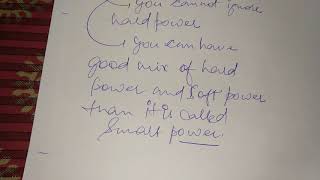 you cannot ignore
hard power
you can have
good mix of hard
power and soft power
than it is called
Smart power.